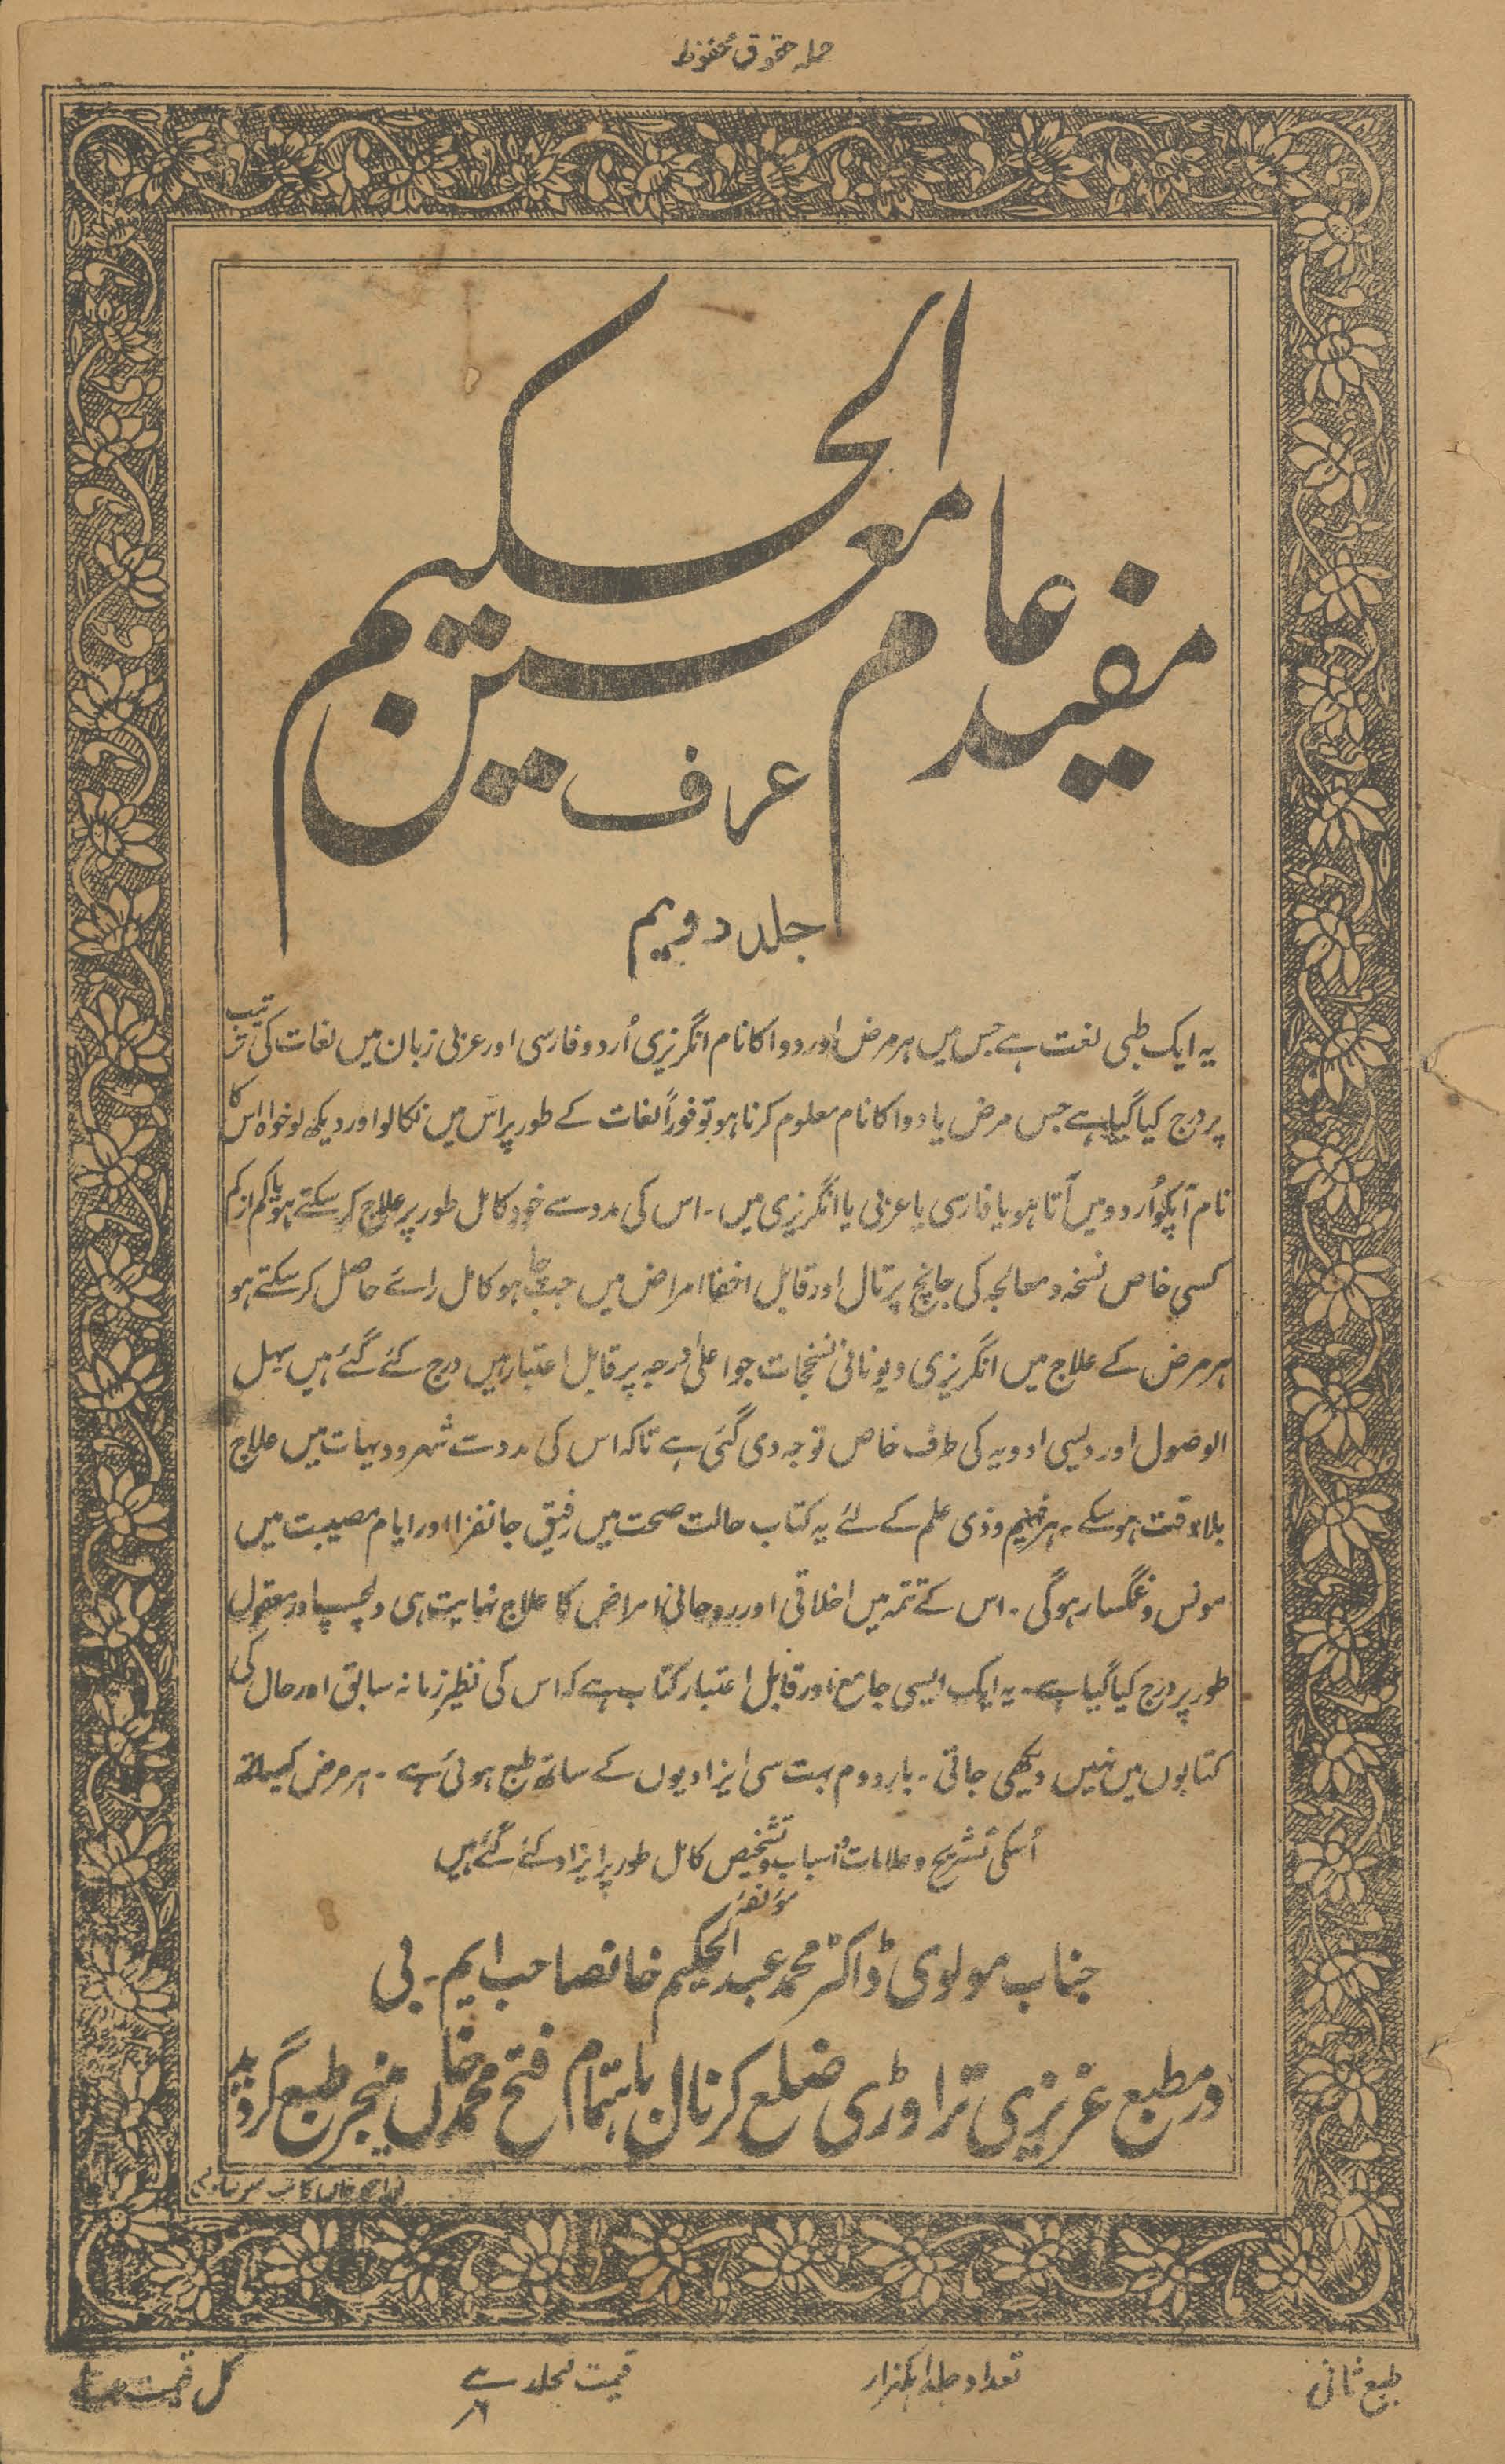 جملہ حقوق محفوظ
مفید عام معین الحکیم
عرف
جلد دویم
یہ ایک طبی لغت ہے جس میں ہر مرض اور دوا کا نام انگریزی اُردو فارسی اور عربی زبان میں لغات کی ترتیب
پر درج کیا گیا ہے جس مرض یا دوا کا نام معلوم کرنا ہو تو فوراً لغات کے طور پر اس میں نکالو اور دیکھ لو خواہ اس کا
نام آپکو اُردو میں آتا ہو یا فارسی یا عربی یا انگریزی میں ۔ اس کی مدد سے خود کامل طور پر علاج کر سکتے ہو یا کم از کم
کسی خاص نسخہ و معالجہ کی جانچ پرتال اور قابل اخفا امراض میں جب چاہو کامل رائے حاصل کر سکتے ہو
ہر مرض کے علاج میں انگریزی و یونانی نسخجات جو اعلیٰ درجہ پر قابل اعتبار ہیں درج کئے گئے ہیں سہل
الوصول اور دیسی ادویہ کی طرف خاص توجہ دی گئی ہے تاکہ اس کی مدد سے شہر و دیہات میں علاج
بلا دقت ہو سکے ۔ ہر فہیم و ذی علم کے لئے یہ کتاب حالت صحت میں رفیق جانفزا اور ایام مصیبت میں
مونس و غمگسار ہوگی ۔ اس کے تتمہ میں اخلاقی اور روحانی امراض کا علاج نہایت ہی دلچسپ اور معقول
طور پر درج کیا گیا ہے ۔ یہ ایک ایسی جامع اور قابل اعتبار کتاب ہے کہ اس کی نظیر زمانہ سابق اور حال کی
کتابوں میں نہیں دیکھی جاتی ۔ بار دوم بہت سی ایزادیوں کے ساتھ طبع ہوئی ہے ۔ ہر مرض کیساتھ
اُسکی تشریح و علامات و اسباب و تشخیص کامل طور پر ایزاد کئے گئے ہیں
مؤلفہ
جناب مولوی ڈاکٹر محمد عبد الحکیم خانصاحب ایم ۔ بی
در مطبع عزیزی تراوڑی ضلع کرنال باہتمام فتح محمد خاں منیجر طبع گردید
طبع ثانی
تعداد جلد ایکہزار
قیمت فیجلد
کل قیمت